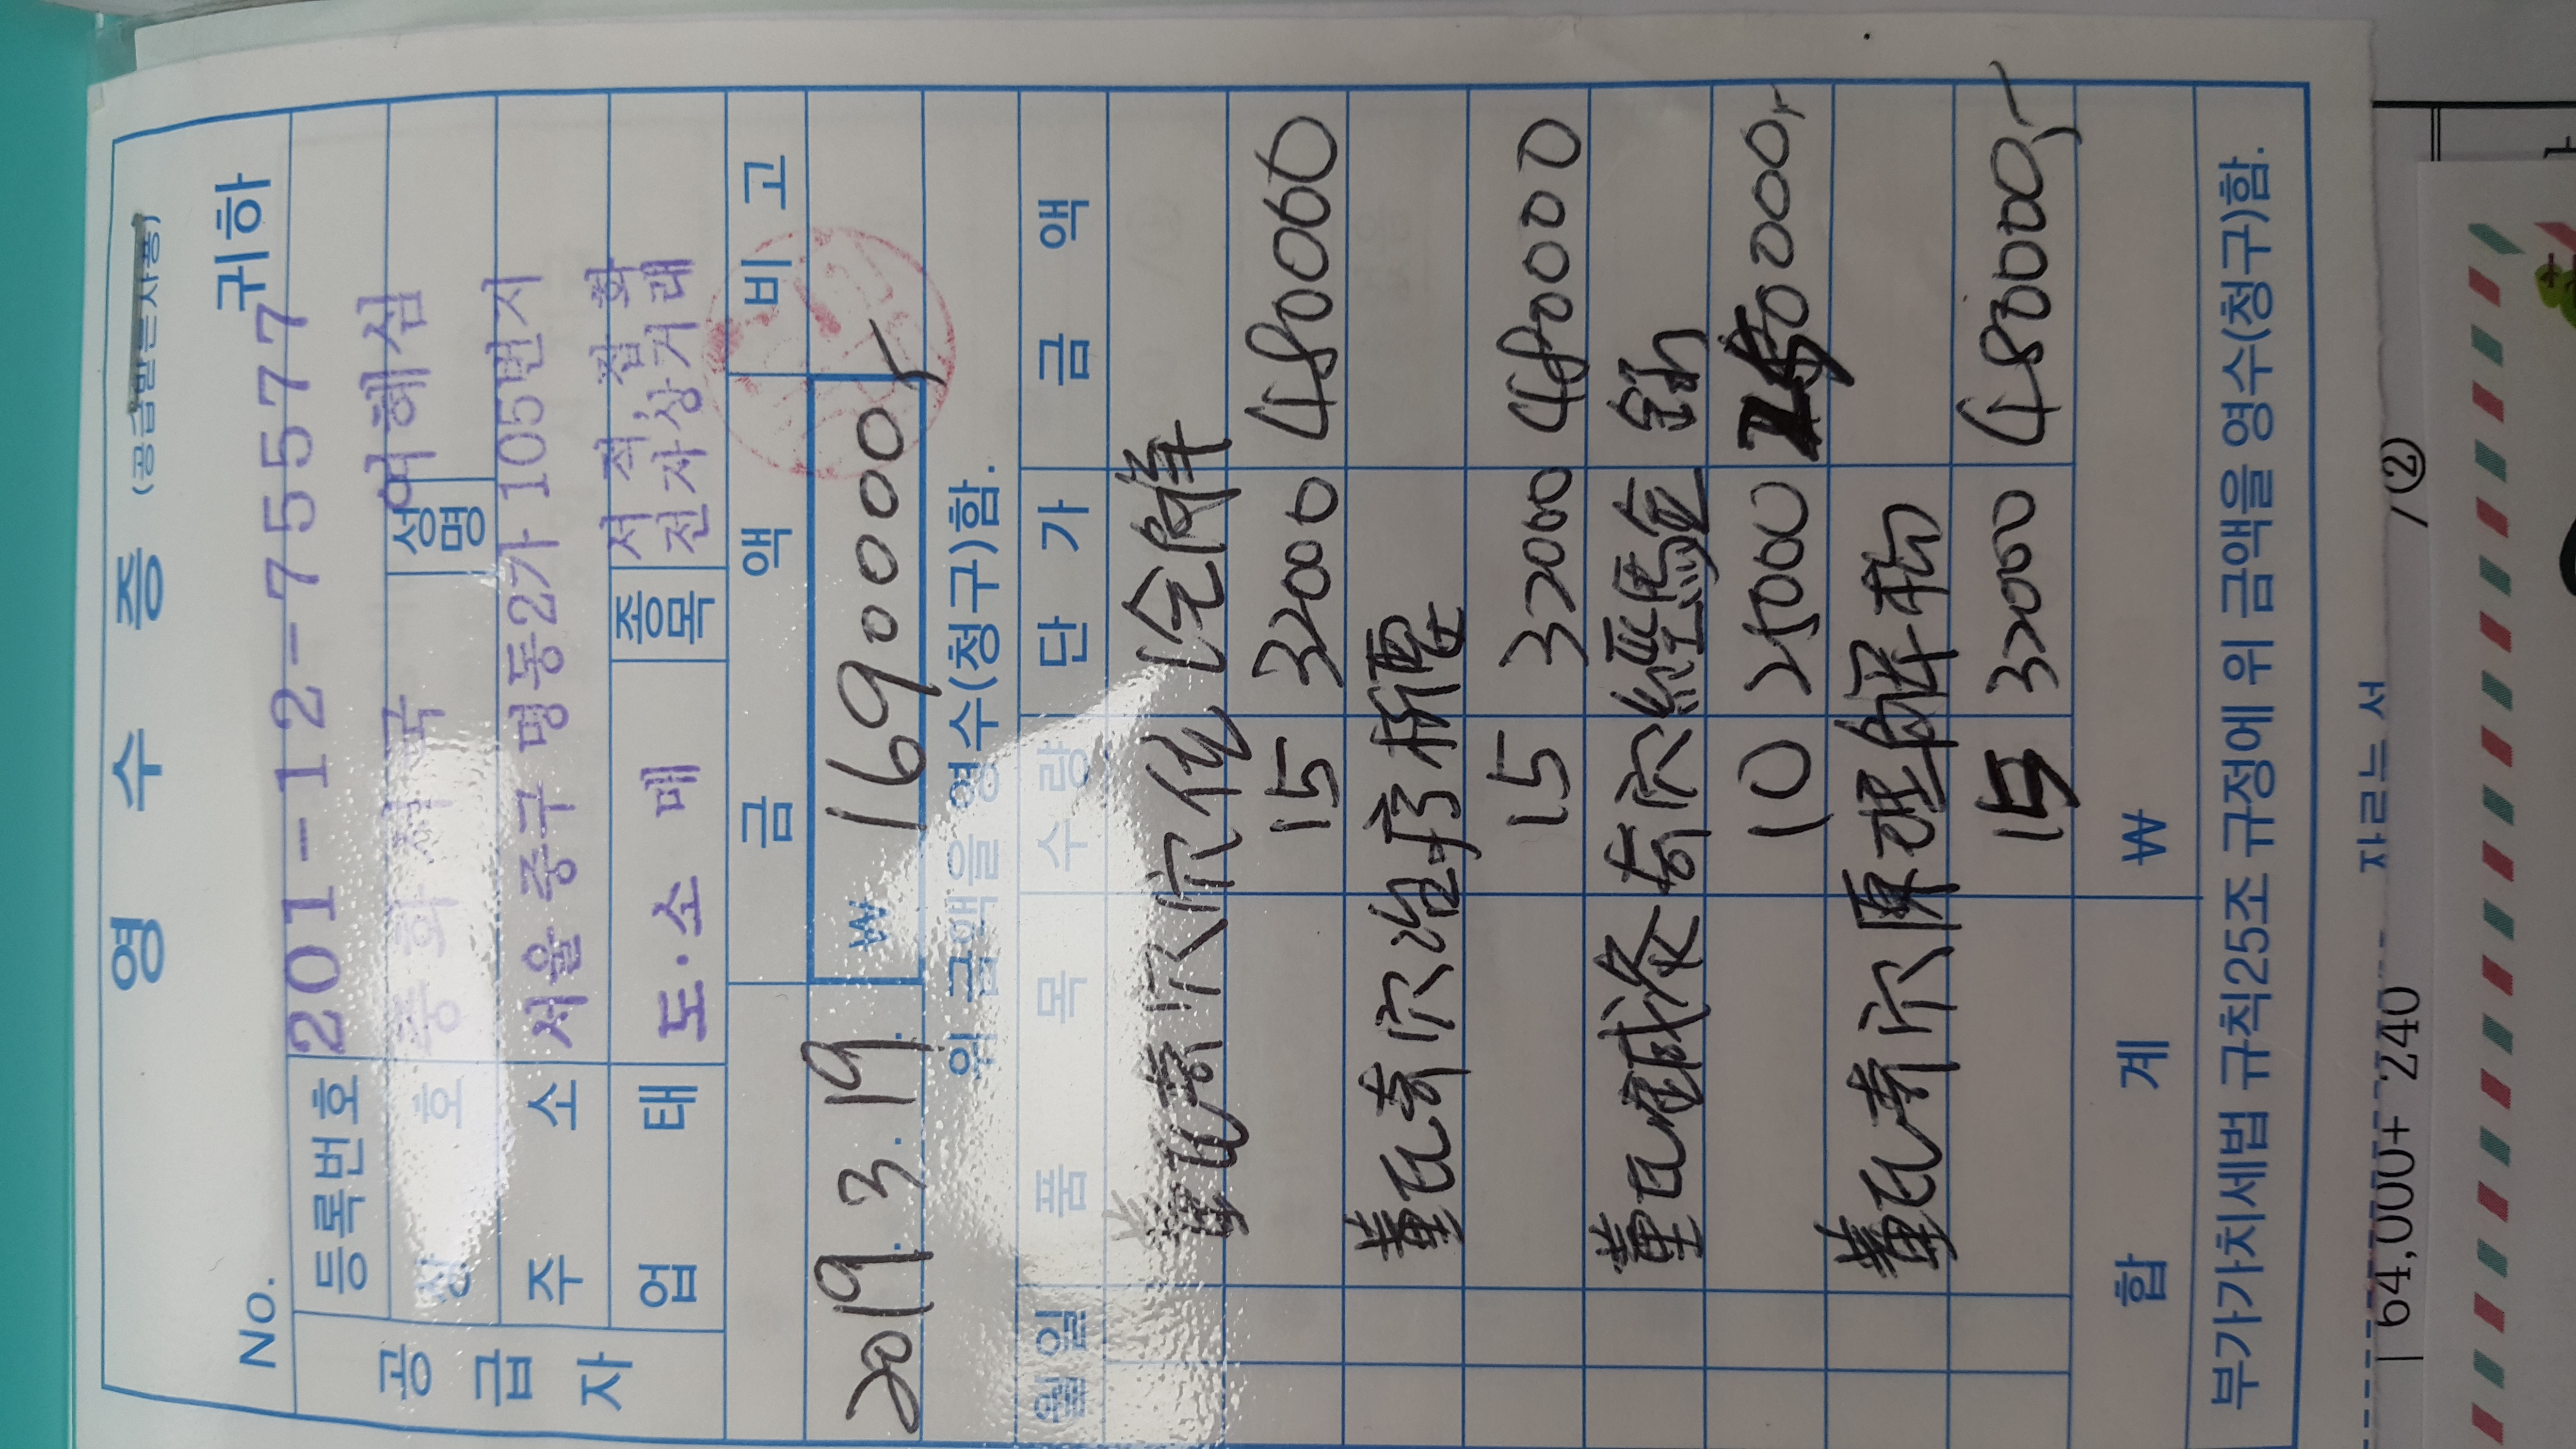 영 수 증 (공급받는자용)
No. 귀하
공급자
등록번호 201-12-75577
상 호 중화서국 성명 여혜심
주 소 서울 중구 명동2가 105번지
업 태 도·소 매 종목 서적 잡화
전자상거래
금 액 비 고
2019. 3. 19. ₩ 169000
위 금액을 영수(청구)함.
월일 품 목 수 량 단 가 금 액
董氏奇穴
15 32000 480000
董氏奇穴治疗析要
15 32000 480000
董氏鍼灸奇穴經驗金
10 25000 250000
董氏奇穴原理解
15 32000 480000
합 계 ₩
부가가치세법 규칙25조 규정에 위 금액을 영수(청구)함.
자르는 서
64,000+ 240 /②